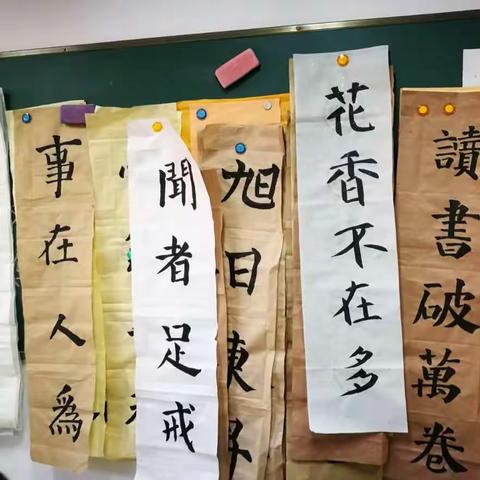 事在人為
聞者足戒
旭日東
花香不在多
讀書破萬卷